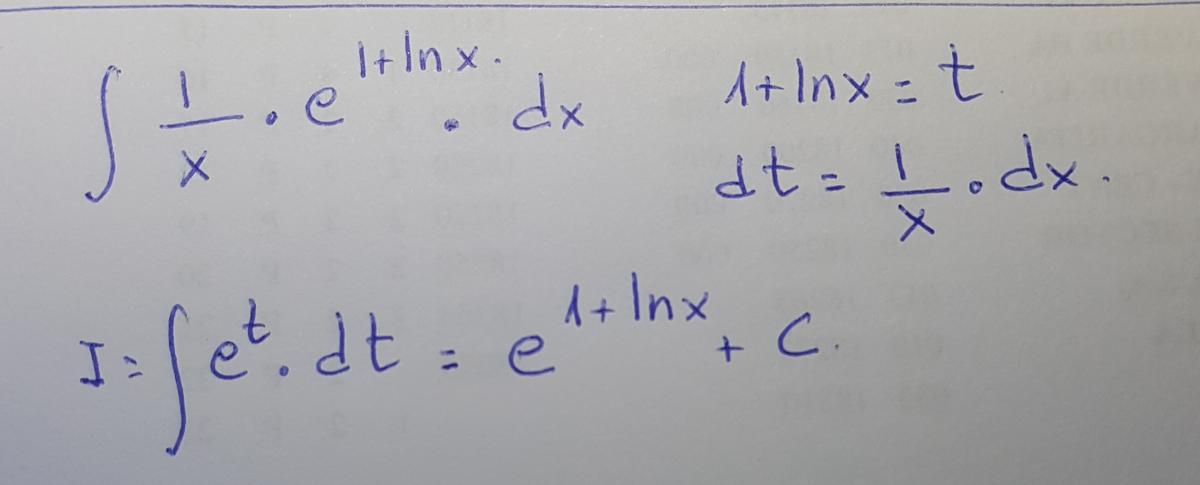 ∫ 1/x · e^(1+ln x) · dx
1+ln x = t
dt = 1/x · dx.
I = ∫ e^t · dt = e^(1+ln x) + C.